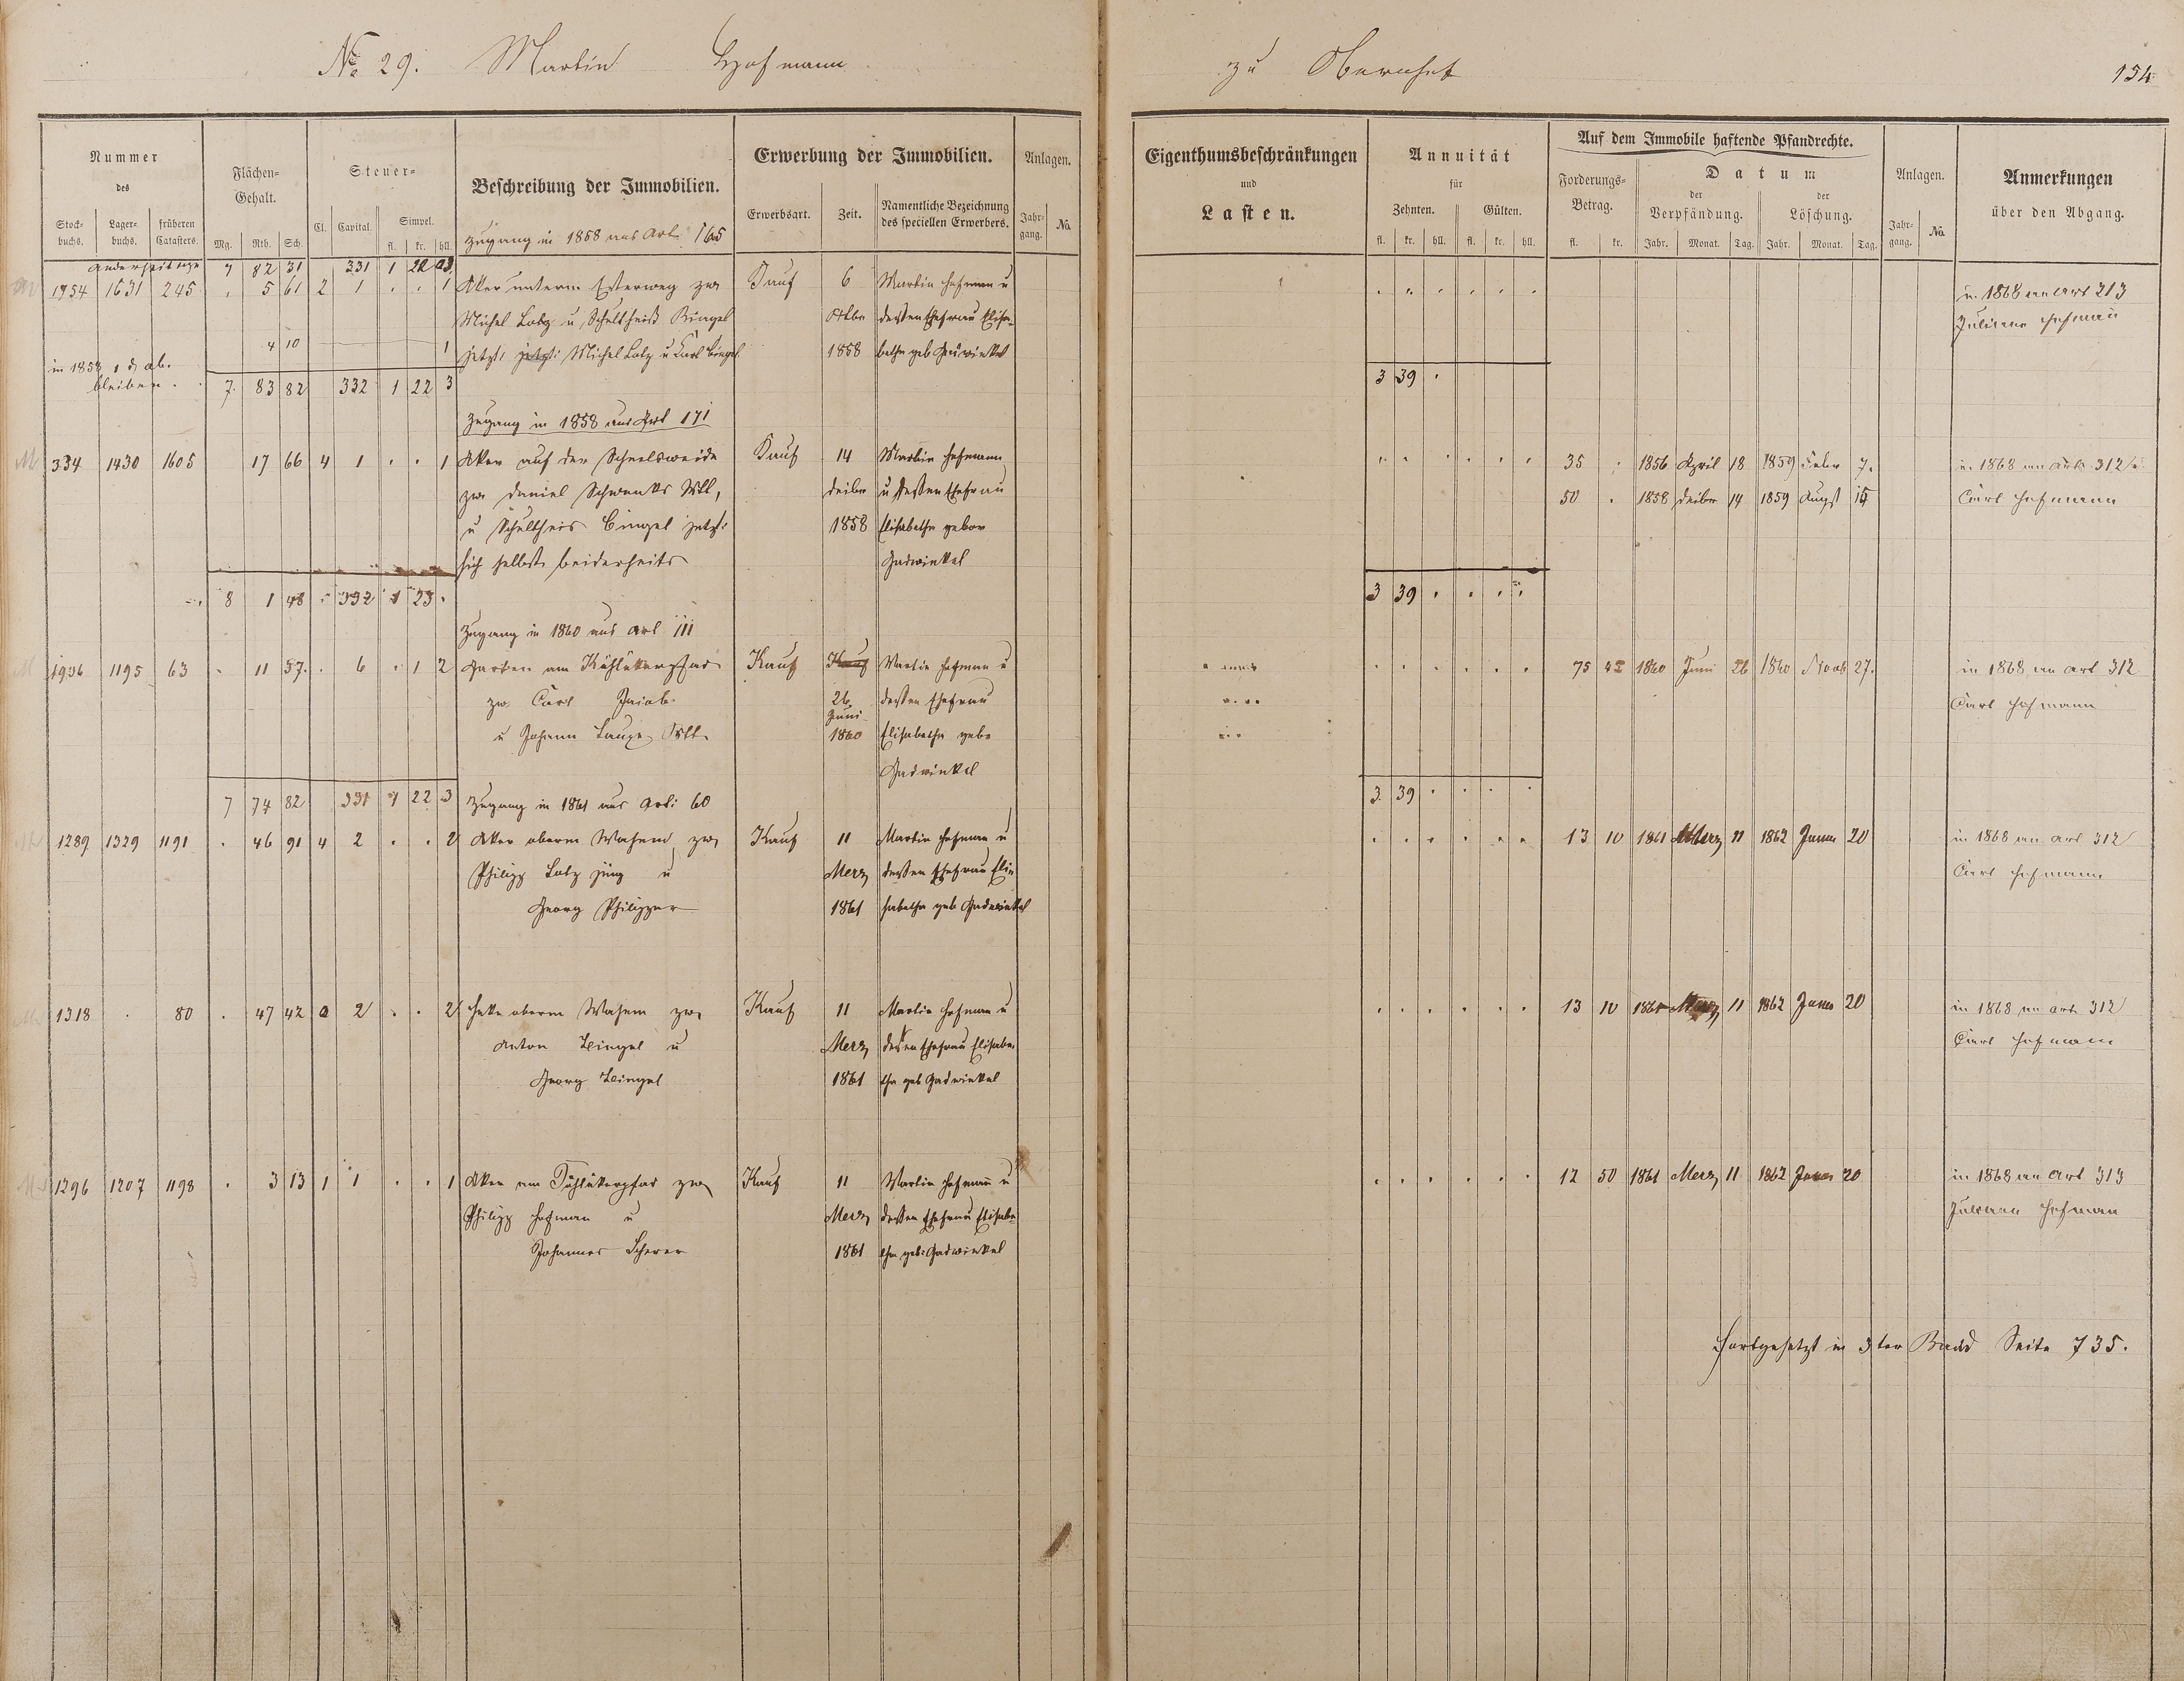 No. 29. Martin Hofmann zu Obernhof 154
Nummer
des
Stock-
buchs.
Lager-
buchs.
früheren
Catasters.
Flächen-
Gehalt.
Mg. Rth. Sch.
Steuer-
Cl. Capital. Simpel.
fl. kr. hll.
Beschreibung der Immobilien.
Erwerbung der Immobilien.
Erwerbsart. Zeit. Namentliche Bezeichnung
des speciellen Erwerbers.
Anlagen.
Jahr-
gang. No.
Eigenthumsbeschränkungen
und
Lasten.
Annuität
für
Zehnten. Gülten.
fl. kr. hll. fl. kr. hll.
Auf dem Immobile haftende Pfandrechte.
Forderungs-
Betrag.
fl. kr.
Datum
der
Verpfändung.
Jahr. Monat. Tag.
der
Löschung.
Jahr. Monat. Tag.
Anlagen.
Jahr-
gang. No.
Anmerkungen
über den Abgang.
Zugang in 1858 aus Art 165
7 82 31 331 1 22
1954 1631 245 . 5 61 2 1 . . 1 Aker unterm Esterweg zw Kauf 6 Martin Hofmann u in 1868 an Art 313
Michel Lotz u Schultheiß Bingel Octbr dessen Ehefrau Elisa- Juliane Hofman
4 10 1 jetzt: Michel Lotz u Karl Bingel 1858 betha geb Gudwinkel
in 1858 ab.
bleiben . 7. 83 82 332 1 22 3 3 39 .
Zugang in 1858 aus Art 171
334 1430 1605 17 66 4 1 . . 1 Aker auf der Schelsweide Kauf 14 Martin Hofmann 35 . 1856 April 18 1859 Febr 7. in 1868 an Art 312
zw Daniel Schwenks Wtb, Decbr u dessen Ehefrau 50 . 1858 Decbr 14 1859 Augst 14 Carl Hofmann
u Schultheis Bingel jetzt: 1858 Elisabetha gebor
sich selbst beiderseits Gudwinkel
8 1 48 . 332 1 23 . 3 39 . . . .
Zugang in 1860 aus Art 111
1936 1195 63 . 11 57. . 6 . 1 2 Garten am Kauf Martin Hofman u 75 42 1860 Juni 26 1860 Novb 27. in 1868 an Art 312
zw Carl Jacob 26 dessen Ehefrau Carl Hofmann
u Johann Wtb Juni
1860 Elisabetha geb
Gudwinkel
7 74 82 331 1 22 3 Zugang in 1861 aus Art: 60 3 39 . . . .
1289 1329 1191 . 46 91 4 2 . . 2 Aker oberm Wasem zw Kauf 11 Martin Hofman u 13 10 1861 Merz 11 1862 Janur 20 in 1868 an Art 312
Philipp Lotz jung u Merz dessen Ehefrau Eli- Carl Hofmann
Georg Philippar 1861 sabetha geb Gudwinkel
1318 . 80 . 47 42 2 . . 2 Heke oberm Wasem zw Kauf 11 Martin Hofman u 13 10 1861 Merz 11 1862 Janur 20 in 1868 an Art 312
Anton Bingel u Merz dessen Ehefrau Elisabe- Carl Hofmann
Georg Bingel 1861 tha geb Gudwinkel
1296 1207 1198 . 3 13 1 1 . . 1 Aker am zw Kauf 11 Martin Hofmann u 12 50 1861 Merz 11 1862 Janur 20 in 1868 an Art 313
Philipp Hofman u Merz dessen Ehefrau Elisabe- Juliane Hofman
Johannes Scherer 1861 tha geb: Gudwinkel
Fortgesetzt in 3ter Band Seite 735.